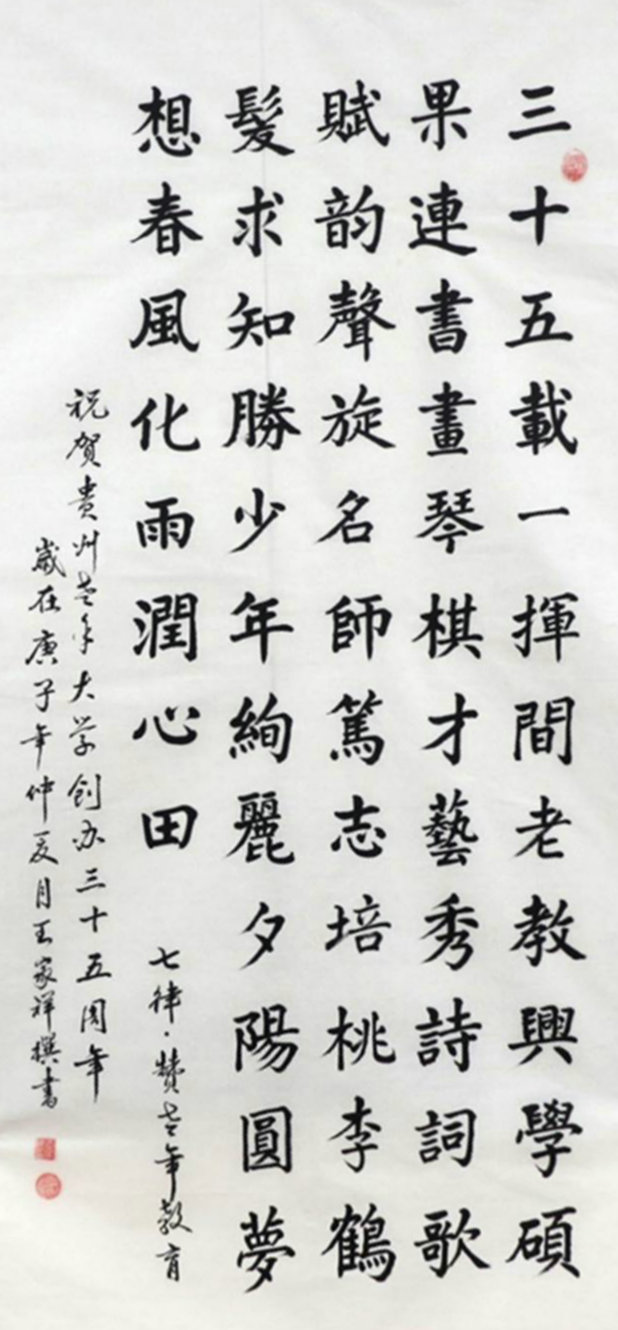 三十五載一揮間老教興學碩
果連書畫琴棋才藝秀詩詞歌
賦韵聲旋名師篤志培桃李鶴
髮求知勝少年絢麗夕陽圓夢
想春風化雨潤心田
七律·贊老年教育
祝贺贵州老年大学创办三十五周年
歲在庚子年仲夏月王家祥撰書